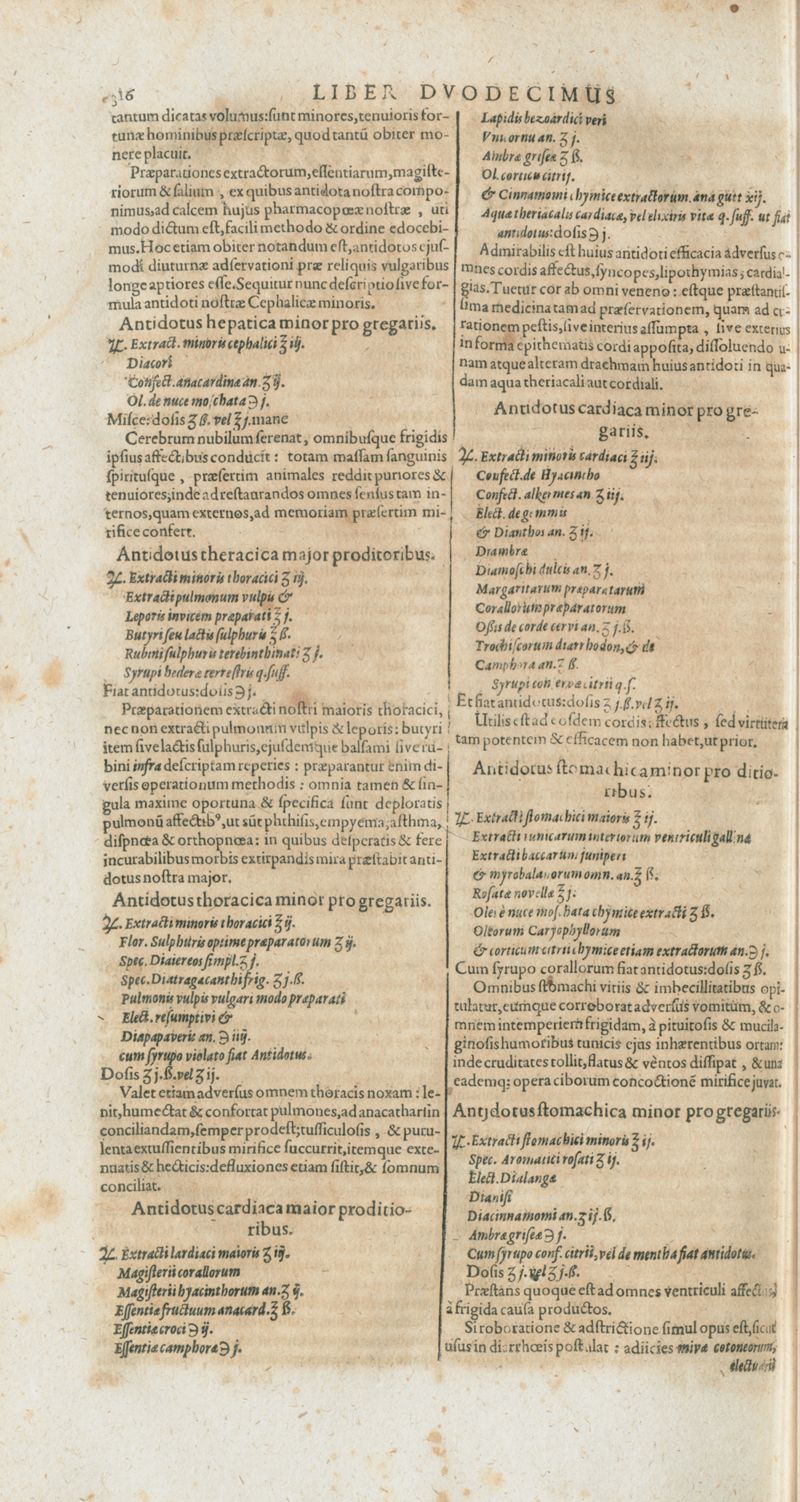 316 LIBER DVODECIMUS
tantum dicatas volumus:ſunt minores,tenuioris for-
tunæ hominibus præſcriptæ, quod tantū obiter mo-
nere placuit.
Præparationes extractorum,eſſentiarum,magiſte-
riorum & ſalium , ex quibus antidota noſtra compo-
nimus,ad calcem hujus pharmacopœæ noſtræ , uti
modo dictum eſt,facili methodo & ordine edocebi-
mus.Hoc etiam obiter notandum eſt,antidotos ejuſ-
modi diuturnæ adſervationi præ reliquis vulgaribus
longe aptiores eſſe.Sequitur nunc deſcriptio ſive for-
mula antidoti noſtræ Cephalicæ minoris.
Antidotus hepatica minor pro gregariis.
℞. Extract. minoris cephalici ℥ iij.
Diacori
Confect.anacardinæ an.℥ ij.
Ol.de nuce moſchata ℈ j.
Miſce: doſis ʒ ß. vel ʒ j.mane
Cerebrum nubilum ſerenat, omnibuſque frigidis
ipſius affectibus conducit : totam maſſam ſanguinis
ſpirituſque , præſertim animales reddit puriores &
tenuiores,inde ad reſtaurandos omnes ſenſus tam in-
ternos,quam externos,ad memoriam præſertim mi-
rifice confert.
Antidotus theracica major proditoribus.
℞. Extracti minoris thoracici ℥ iij.
Extracti pulmonum vulpis &
Leporis invicem præparati ℥ j.
Butyri ſeu lactis ſulphuris ℥ ß.
Rubini ſulphuris terebinthinati ʒ j.
Syrupi hederæ terreſtris q.ſuff.
Fiat antidotus:doſis ℈ j.
Præparationem extracti noſtri maioris thoracici,
nec non extracti pulmonum vulpis & leporis: butyri
item ſive lactis ſulphuris,ejuſdemque balſami ſive ru-
bini infra deſcriptam reperies : præparantur enim di-
verſis operationum methodis : omnia tamen & ſin-
gula maxime oportuna & ſpecifica ſunt deploratis
pulmonū affectibꝰ,ut sūt phthiſis,empyema,aſthma,
diſpnœa & orthopnœa: in quibus deſperatis & fere
incurabilibus morbis extirpandis mira præſtabit anti-
dotus noſtra major.
Antidotus thoracica minor pro gregariis.
℞. Extracti minoris thoracici ℥ ij.
Flor. Sulphuris optime præparatorum ℥ ij.
Spec. Diaiereos ſimpl.ʒ j.
Spec.Diatragacanthi frig. ʒ j.ß.
Pulmonis vulpis vulgari modo præparati
Elect.reſumptivi &
Diapapaveris an. ℈ iiij.
cum ſyrupo violato fiat Antidotus.
Doſis ʒ j.ß.vel ʒ ij.
Valet etiam adverſus omnem thoracis noxam : le-
nit,humectat & confortat pulmones,ad anacatharſin
conciliandam,ſemper prodeſt;tuſſiculoſis , & puru-
lenta extuſſientibus mirifice ſuccurrit,itemque exte-
nuatis & hecticis:defluxiones etiam ſiſtit,& ſomnum
conciliat.
Antidotus cardiaca maior proditio-
ribus.
℞. Extracti lardiaci maioris ℥ iij.
Magiſterii corallorum
Magiſterii hyacinthorum an.ʒ ij.
Eſſentiæ fructuum anacard.℥ ß.
Eſſentiæ croci ℈ ij.
Eſſentiæ camphoræ ℈ j.
Lapidis bezoardici veri
Unicornu an. ʒ j.
Ambræ griſeæ ʒ ß.
Ol. corticū citrij.
& Cinnamomi chymice extractorum. ana gutt xij.
Aquæ theriacalis cardiacæ, vel elixiris vitæ q. ſuff. ut fiat
antidotus:doſis ℈ j.
Admirabilis eſt huius antidoti efficacia adverſus o-
mnes cordis affectus,ſyncopes,lipothymias, cardial-
gias.Tuetur cor ab omni veneno : eſtque præſtantiſ-
ſima medicina tam ad præſervationem, quam ad cu-
rationem peſtis,ſive interius aſſumpta , ſive exterius
in forma epithematis cordi appoſita, diſſoluendo u-
nam atque alteram drachmam huius antidoti in qua-
dam aqua theriacali aut cordiali.
Antidotus cardiaca minor pro gre-
gariis.
℞. Extracti minoris cardiaci ℥ iij.
Confect.de Hyacintho
Confect. alkermes an ʒ iij.
Elect. de gemmis
& Dianthos an. ʒ ij.
Diambræ
Diamoſchi dulcis an. ʒ j.
Margaritarum præparatarum
Corallorum præparatorum
Oſſis de corde cervi an. ʒ j.ß.
Trochiſcorum diarrhodon,& de
Camphora an.ʒ ß.
Syrupi conſervæ citrii q.ſ.
Et fiat antidotus:doſis ʒ j.ß.vel ʒ ij.
Utilis eſt ad eoſdem cordis affectus , ſed virtutem
tam potentem & efficacem non habet,ut prior.
Antidotus ſtomachica minor pro ditio-
ribus.
℞. Extracti ſtomachici maioris ℥ ij.
Extracti tunicarum interiorum ventriculi gallinæ
Extracti baccarum juniperi
& myrobalanorum omn. an.℥ ß.
Roſatæ novellæ ℥ j.
Olei è nuce moſchata chymice extracti ʒ ß.
Oleorum Caryophyllorum
& corticum citrii chymice etiam extractorum an.℈ j.
Cum ſyrupo corallorum fiat antidotus:doſis ʒ ß.
Omnibus ſtomachi vitiis & imbecillitatibus opi-
tulatur,eumque corroborat adverſus vomitum, & o-
mnem intemperiem frigidam, à pituitoſis & mucila-
ginoſis humoribus tunicis ejus inhærentibus ortam:
inde cruditates tollit,flatus & ventos diſſipat , & una
eademq; opera ciborum concoctionē mirifice juvat.
Antjdotus ſtomachica minor pro gregariis.
℞. Extracti ſtomachici minoris ℥ ij.
Spec. Aromatici roſati ʒ ij.
Elect.Dialangæ
Dianiſi
Diacinnamomi an.ʒ ij.ß.
Ambræ griſeæ ℈ j.
Cum ſyrupo conſ. citrii, vel de mentha fiat antidotus.
Doſis ʒ j. vel ʒ j.ß.
Præſtans quoque eſt ad omnes ventriculi affectus,
à frigida cauſa productos.
Si roboratione & adſtrictione ſimul opus eſt, ſicut
uſus in diarrhœis poſtulat : adiicies mivæ cotoneorum,
electuarii